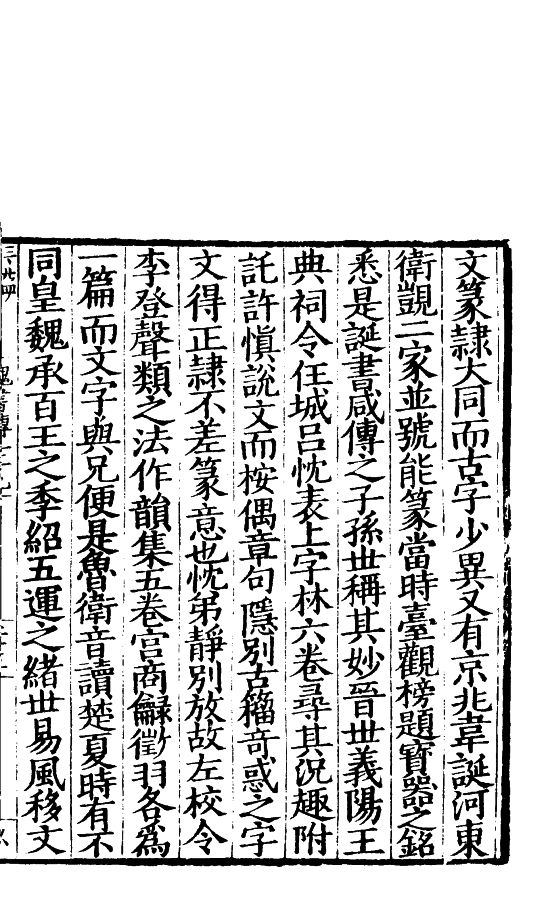 文篆隸大同而古字少異又有京兆韋誕河東
衛覬二家並號能篆當時臺觀榜題寶器之銘
悉是誕書咸傳之子孫世稱其妙晉世義陽王
典祠令任城呂忱表上字林六卷尋其況趣附
託許慎說文而桉偶章句隱別古籀奇惑之字
文得正隸不差篆意也忱弟靜別放故左校令
李登聲類之法作韻集五卷宫商龣徵羽各爲
一篇而文字與兄便是魯衛音讀楚夏時有不
同皇魏承百王之季紹五運之緒世易風移文